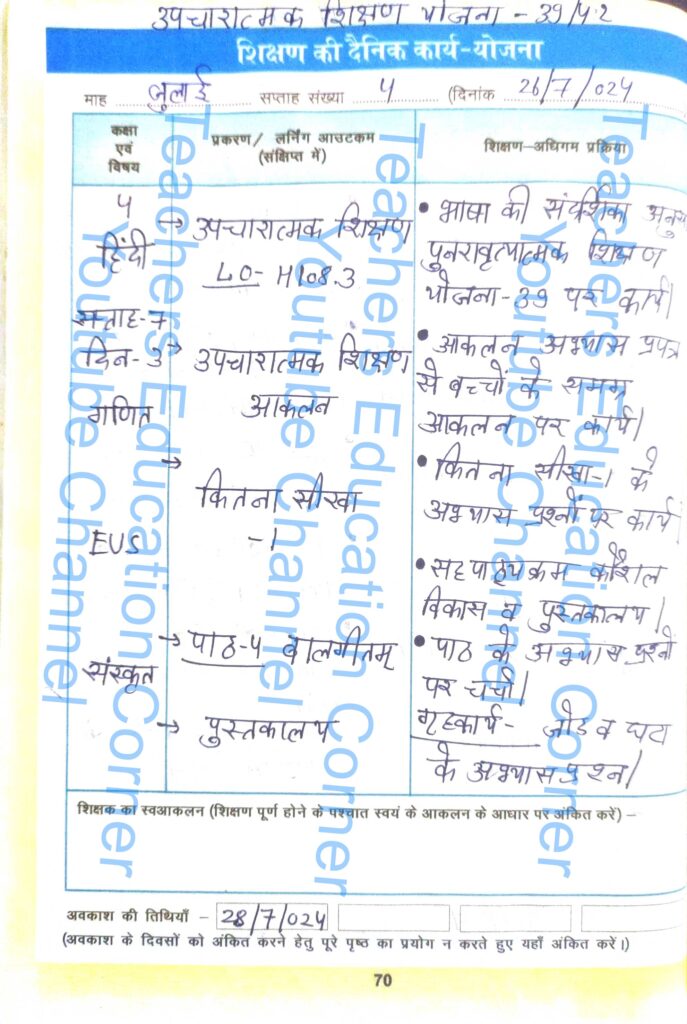 उपचारात्मक शिक्षण योजना - 39/4.2
शिक्षण की दैनिक कार्य-योजना
माह जुलाई सप्ताह संख्या 4 (दिनांक 26/7/024
कक्षा एवं विषय
प्रकरण/ लर्निंग आउटकम (संक्षिप्त में)
शिक्षण-अधिगम प्रक्रिया
5
हिंदी
सप्ताह-7
दिन-3
गणित
EVS
संस्कृत
→ उपचारात्मक शिक्षण
LO- H108.3
→ उपचारात्मक शिक्षण
आकलन
→
कितना सीखा
-1
→ पाठ-4 बालगीतम्
→ पुस्तकालय
• भाषा की संदर्शिका
पुनरावृत्यात्मक शिक्षण
योजना-39 पर कार्य।
• आकलन अभ्यास प्रपत्र
से बच्चों के समग्र
आकलन पर कार्य।
• कितना सीखा-1 के
अभ्यास प्रश्नों पर कार्य
• सहपाठ्यक्रम कौशल
विकास व पुस्तकालय।
• पाठ के अभ्यास प्रश्नों
पर चर्चा।
गृहकार्य- जोड़ व घटा
के अभ्यास प्रश्न।
शिक्षक का स्वआकलन (शिक्षण पूर्ण होने के पश्चात स्वयं के आकलन के आधार पर अंकित करें) –
अवकाश की तिथियाँ – 28/7/024
(अवकाश के दिवसों को अंकित करने हेतु पूरे पृष्ठ का प्रयोग न करते हुए यहाँ अंकित करें।)
70
Teachers Education Corner
Youtube Channel
Teachers Education Corner
Youtube Channel
Teachers Education Corner
Youtube Channel